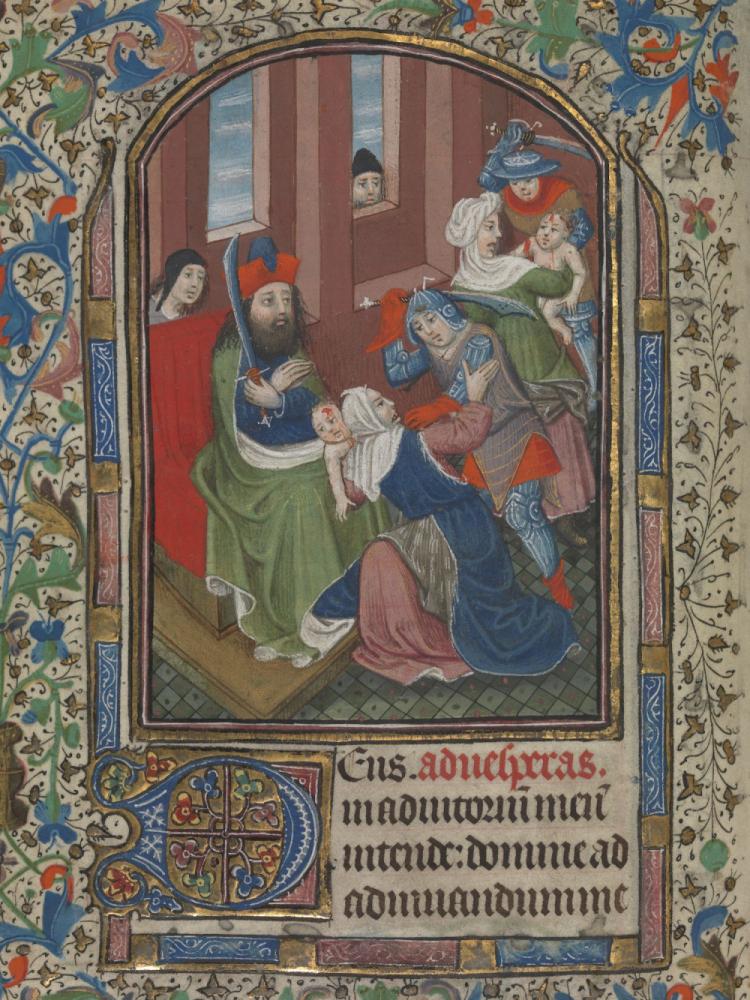 Deus. ad uesperas.
in adiutoriū meū
intende: domine ad
adiuuandum me